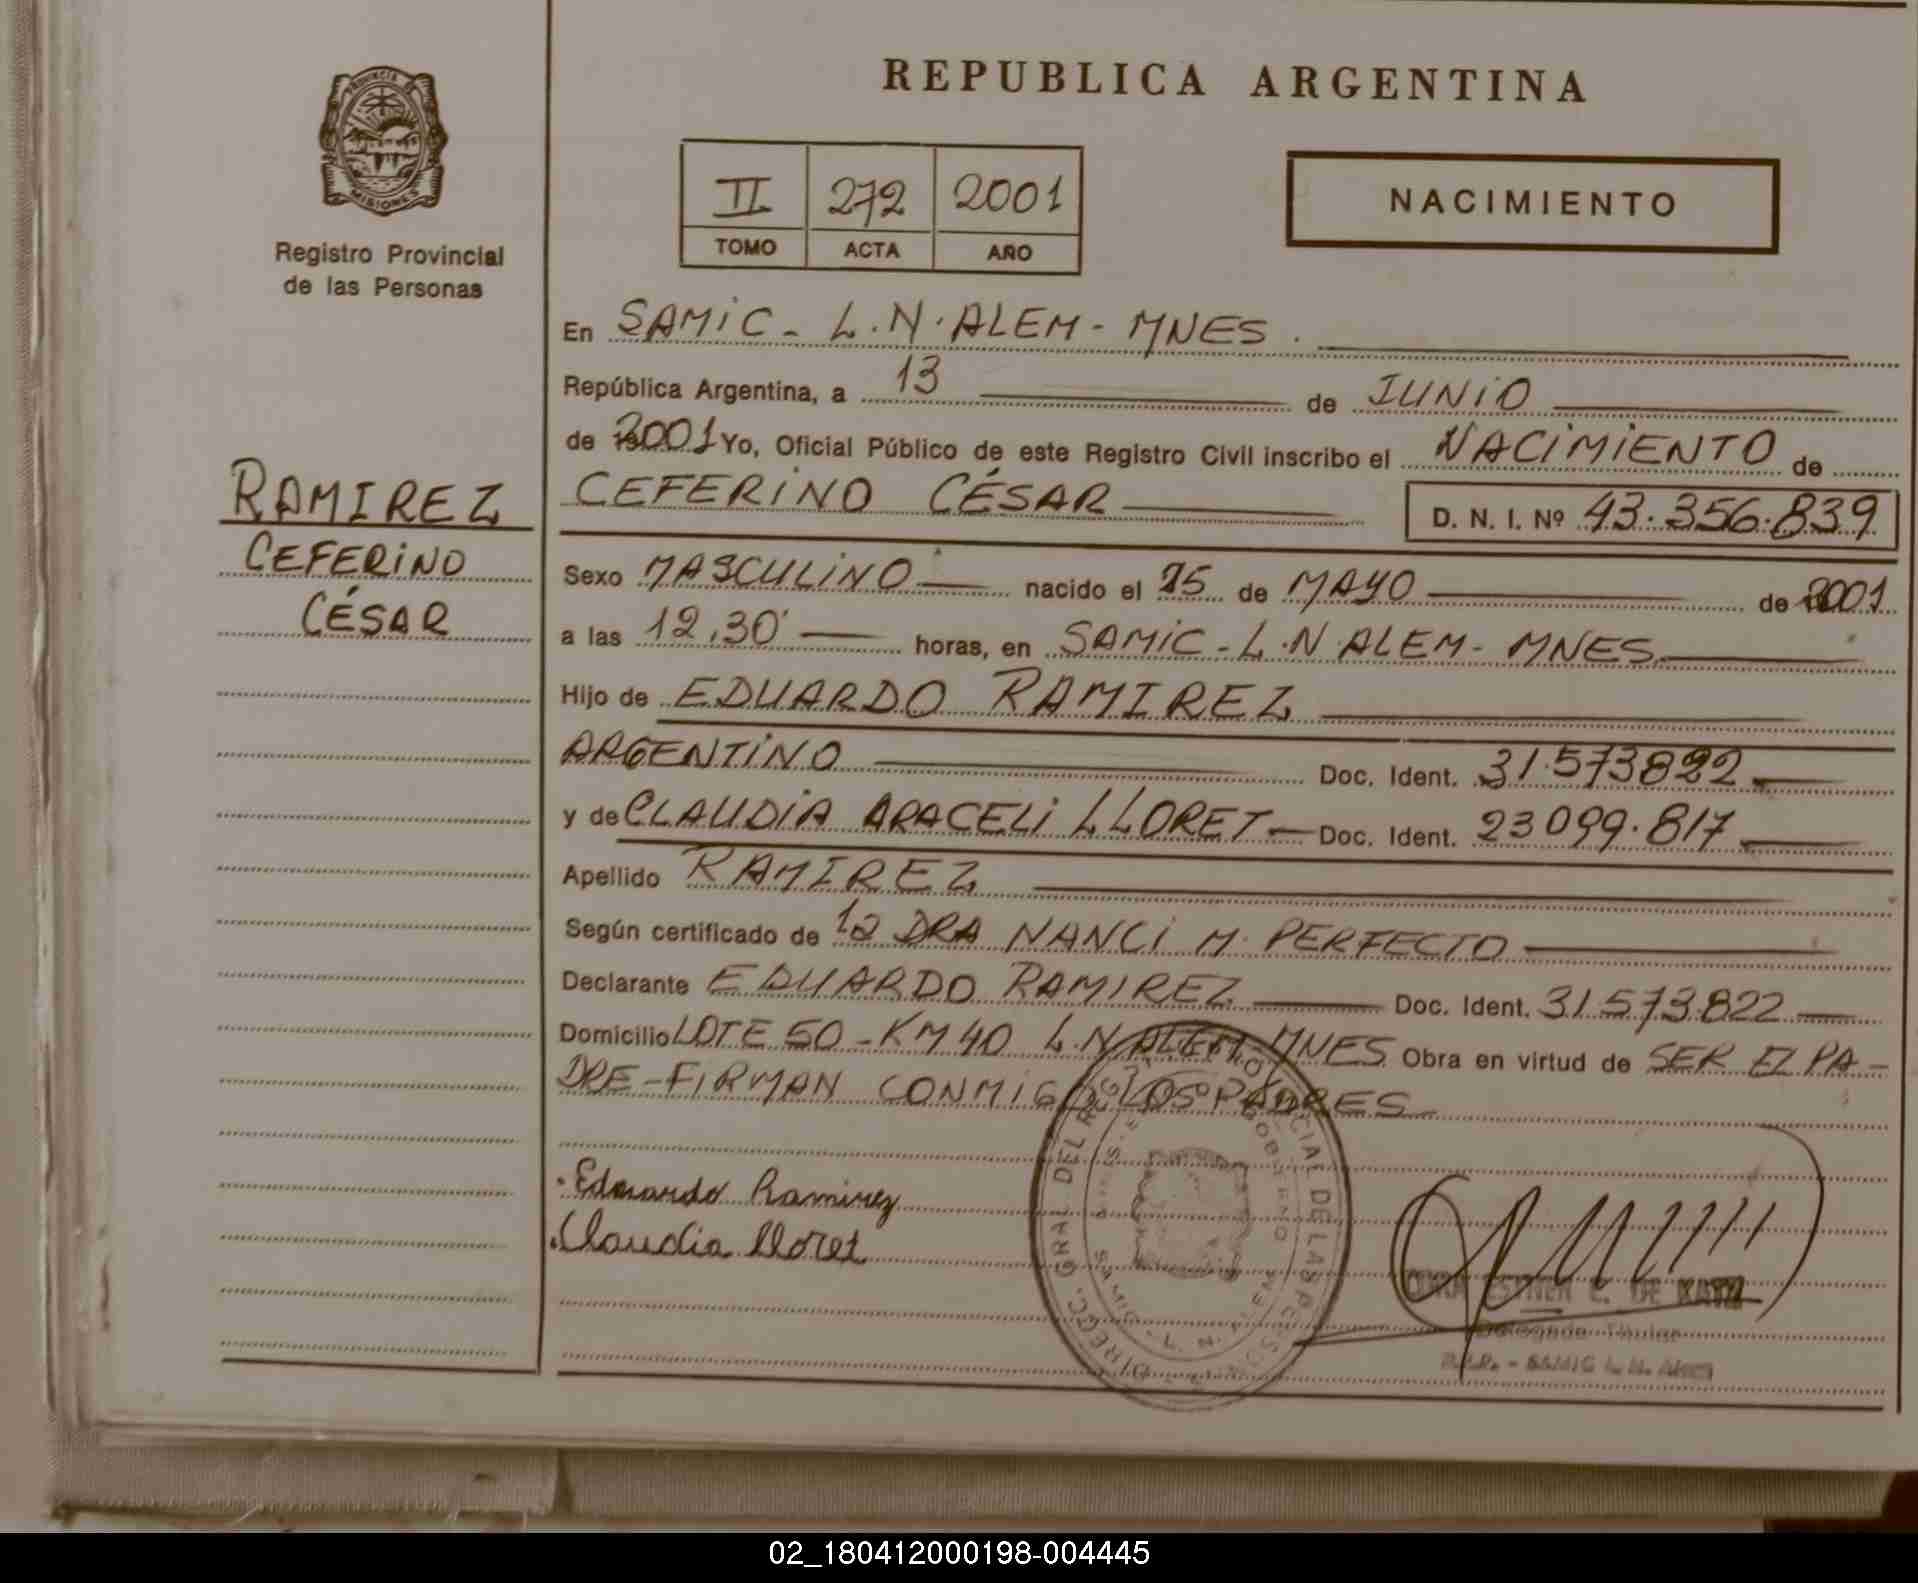 REPUBLICA ARGENTINA
PROVINCIA DE MISIONES
Registro Provincial
de las Personas
II 272 2001
TOMO ACTA AÑO
NACIMIENTO
En SAMIC - L.N. ALEM - MNES.
República Argentina, a 13 de JUNIO
de 2001 Yo, Oficial Público de este Registro Civil inscribo el NACIMIENTO de
CEFERINO CÉSAR D. N. I. Nº 43.356.839
RAMIREZ
CEFERINO
CÉSAR
Sexo MASCULINO nacido el 25 de MAYO de 2001
a las 12,30' horas, en SAMIC - L.N ALEM - MNES
Hijo de EDUARDO RAMIREZ
ARGENTINO Doc. Ident. 31.573822
y de CLAUDIA ARACELI LLORET Doc. Ident. 23099.817
Apellido RAMIREZ
Según certificado de la DRA NANCI M. PERFECTO
Declarante EDUARDO RAMIREZ Doc. Ident. 31.573.822
Domicilio LOTE 50 - KM 40 L.N ALEM MNES Obra en virtud de SER EL PA-
DRE - FIRMAN CONMIGO LOS PADRES
Eduardo Ramirez
Claudia Lloret
DIREC. GRAL DEL REGISTRO PROVINCIAL DE LAS PERSONAS
SAMIC - L. N. ALEM
ESTHER C. DE KATZ
Delegada Titular
R.P.P. - SAMIC L. N. ALEM
02_180412000198-004445